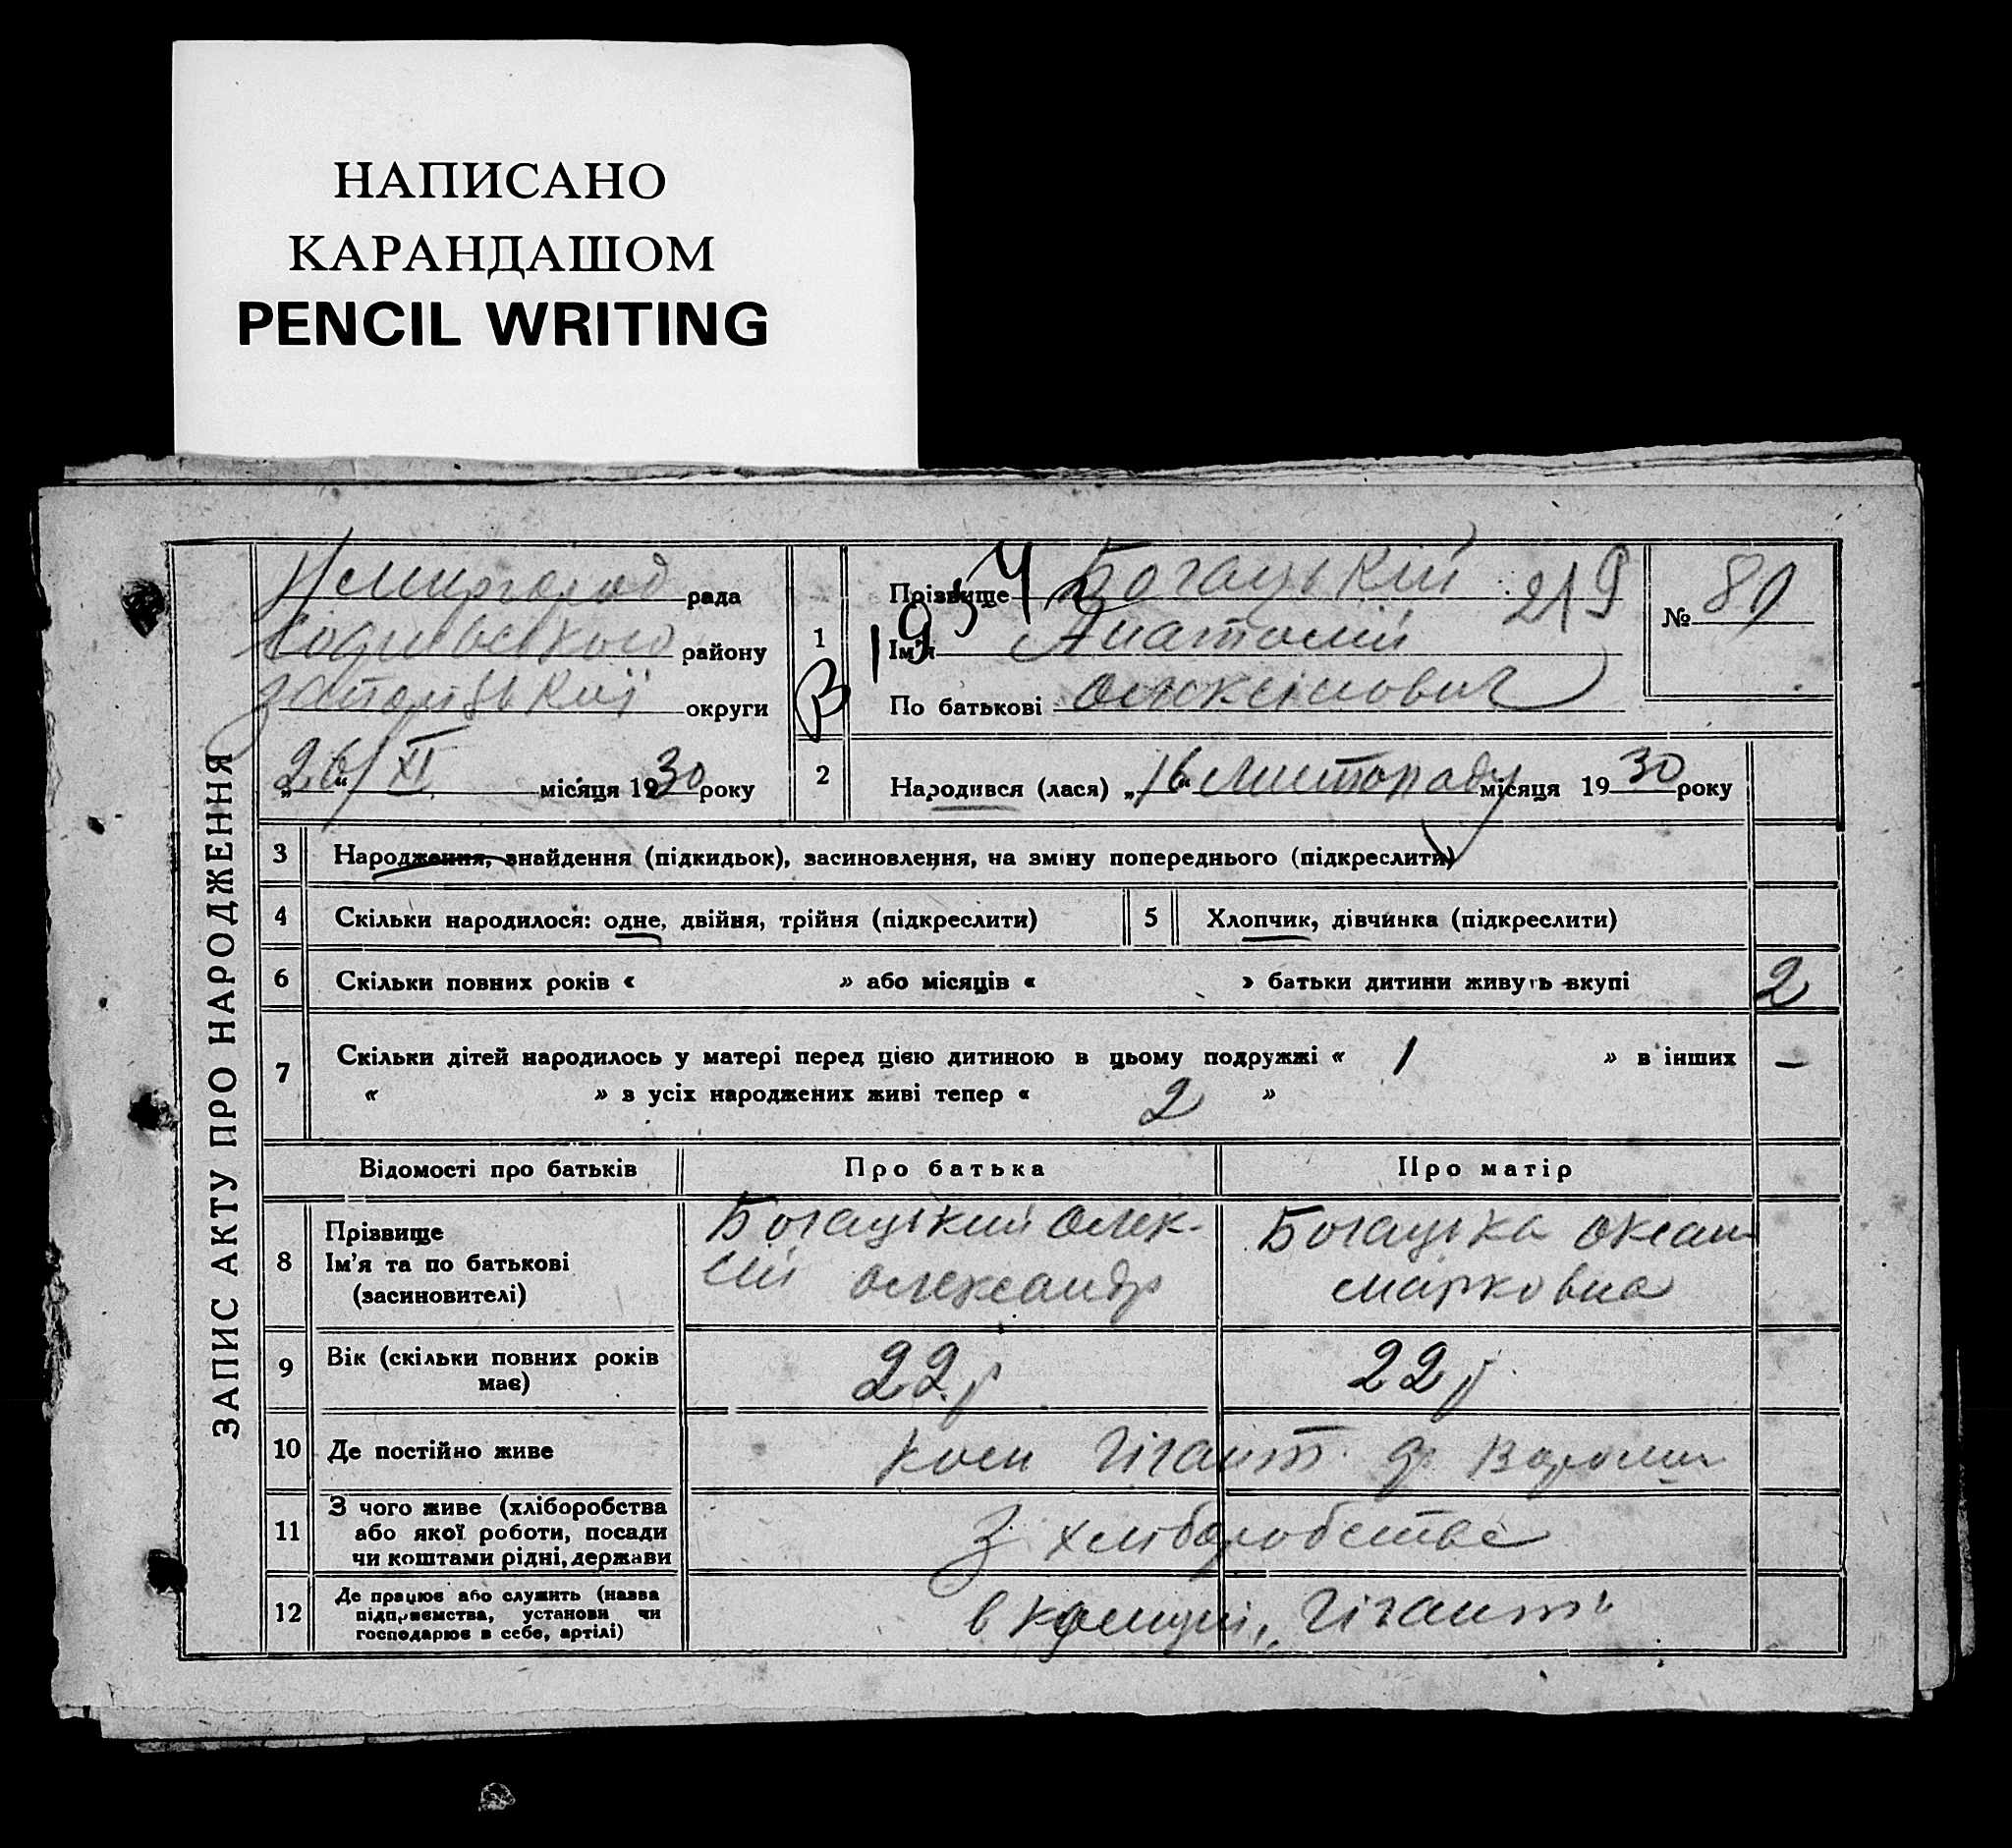 НАПИСАНО
КАРАНДАШОМ
PENCIL WRITING
ЗАПИС АКТУ ПРО НАРОДЖЕННЯ
рада
району
округи
26/XI місяця 1930 року
1
Прізвище Богацький 219
Ім'я Анатолій
По батькові Олексійович
№ 80
1934
В
2 Народився (лася) „16“ Листопаду місяця 1930 року
3 Народження, знайдення (підкидьок), засиновлення, на зміну попереднього (підкреслити)
4 Скільки народилося: одне, двійня, трійня (підкреслити)
5 Хлопчик, дівчинка (підкреслити)
6 Скільки повних років « » або місяців « » батьки дитини живуть вкупі 2
7 Скільки дітей народилось у матері перед цією дитиною в цьому подружжі « 1 » в інших –
« » з усіх народжених живі тепер « 2 »
Відомості про батьків Про батька Про матір
8 Прізвище
Ім'я та по батькові
(засиновителі)
Богацький Олек-
сій Олександр
Богацька Оксан
Марковна
9 Вік (скільки повних років
має)
22 р 22 р
10 Де постійно живе
Ком Гігант
11 З чого живе (хліборобства
або якої роботи, посади
чи коштами рідні, держави
З хліборобства
12 Де працює або служить (назва
підприємства, установи чи
господарює в себе, артілі)
в комуні „Гігант“